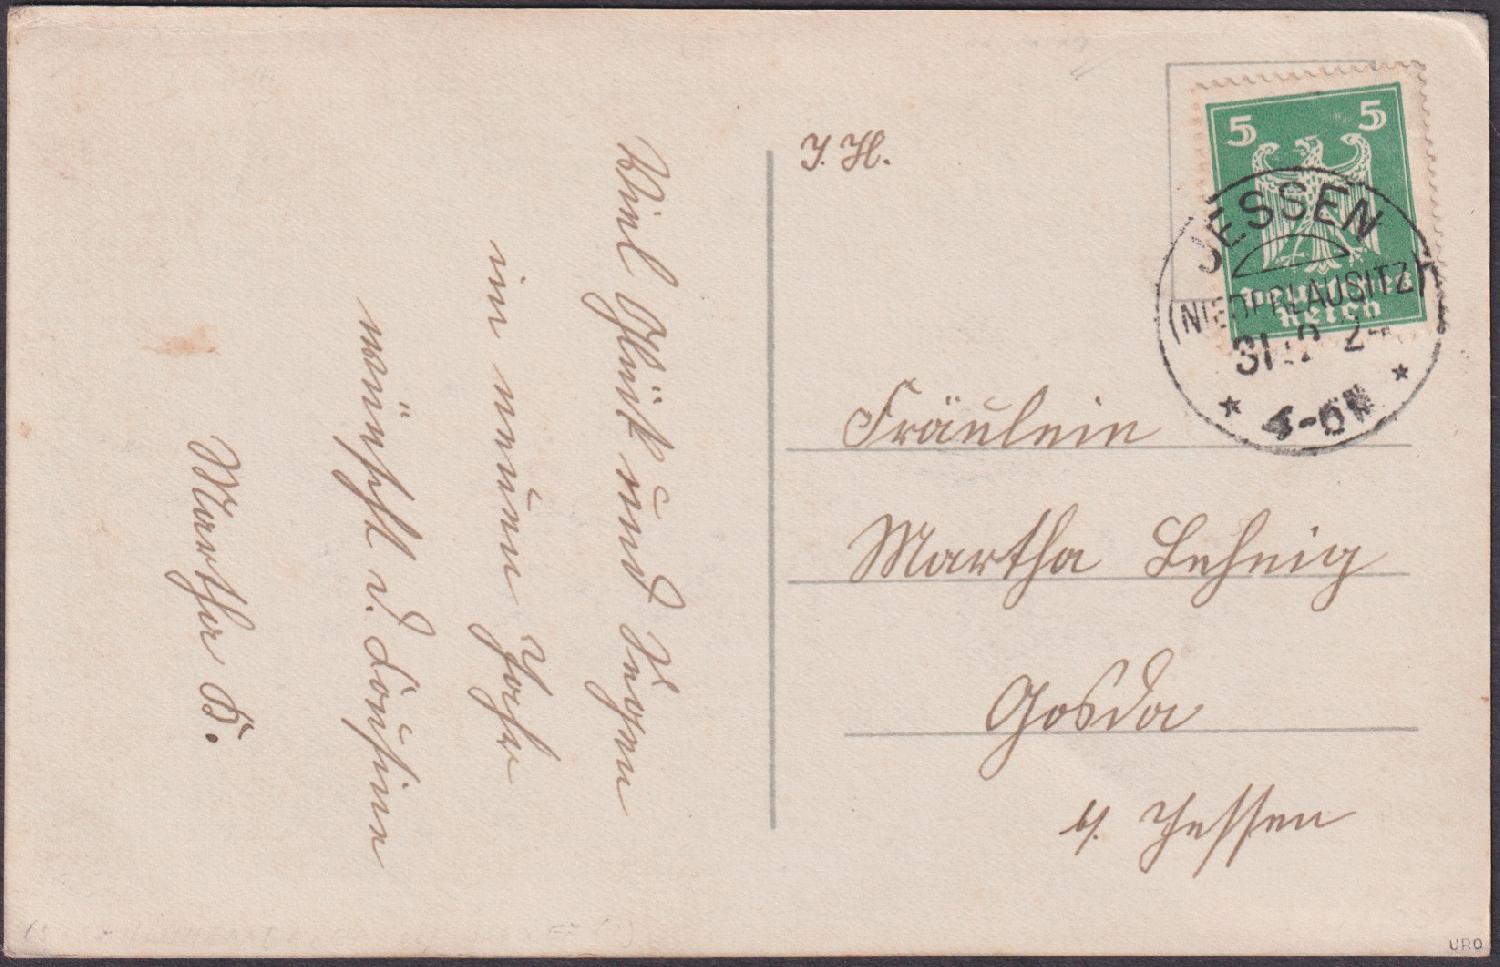 Viel Glück und Segen
im neuen Jahr
wünscht d. Cousine
Martha B.
J. H.
Fräulein
Martha Lehnig
Gosda
b/. Jessen
5 5
Deutsches
Reich
JESSEN
(NIEDERLAUSITZ)
31.12 24
4-6N
URO